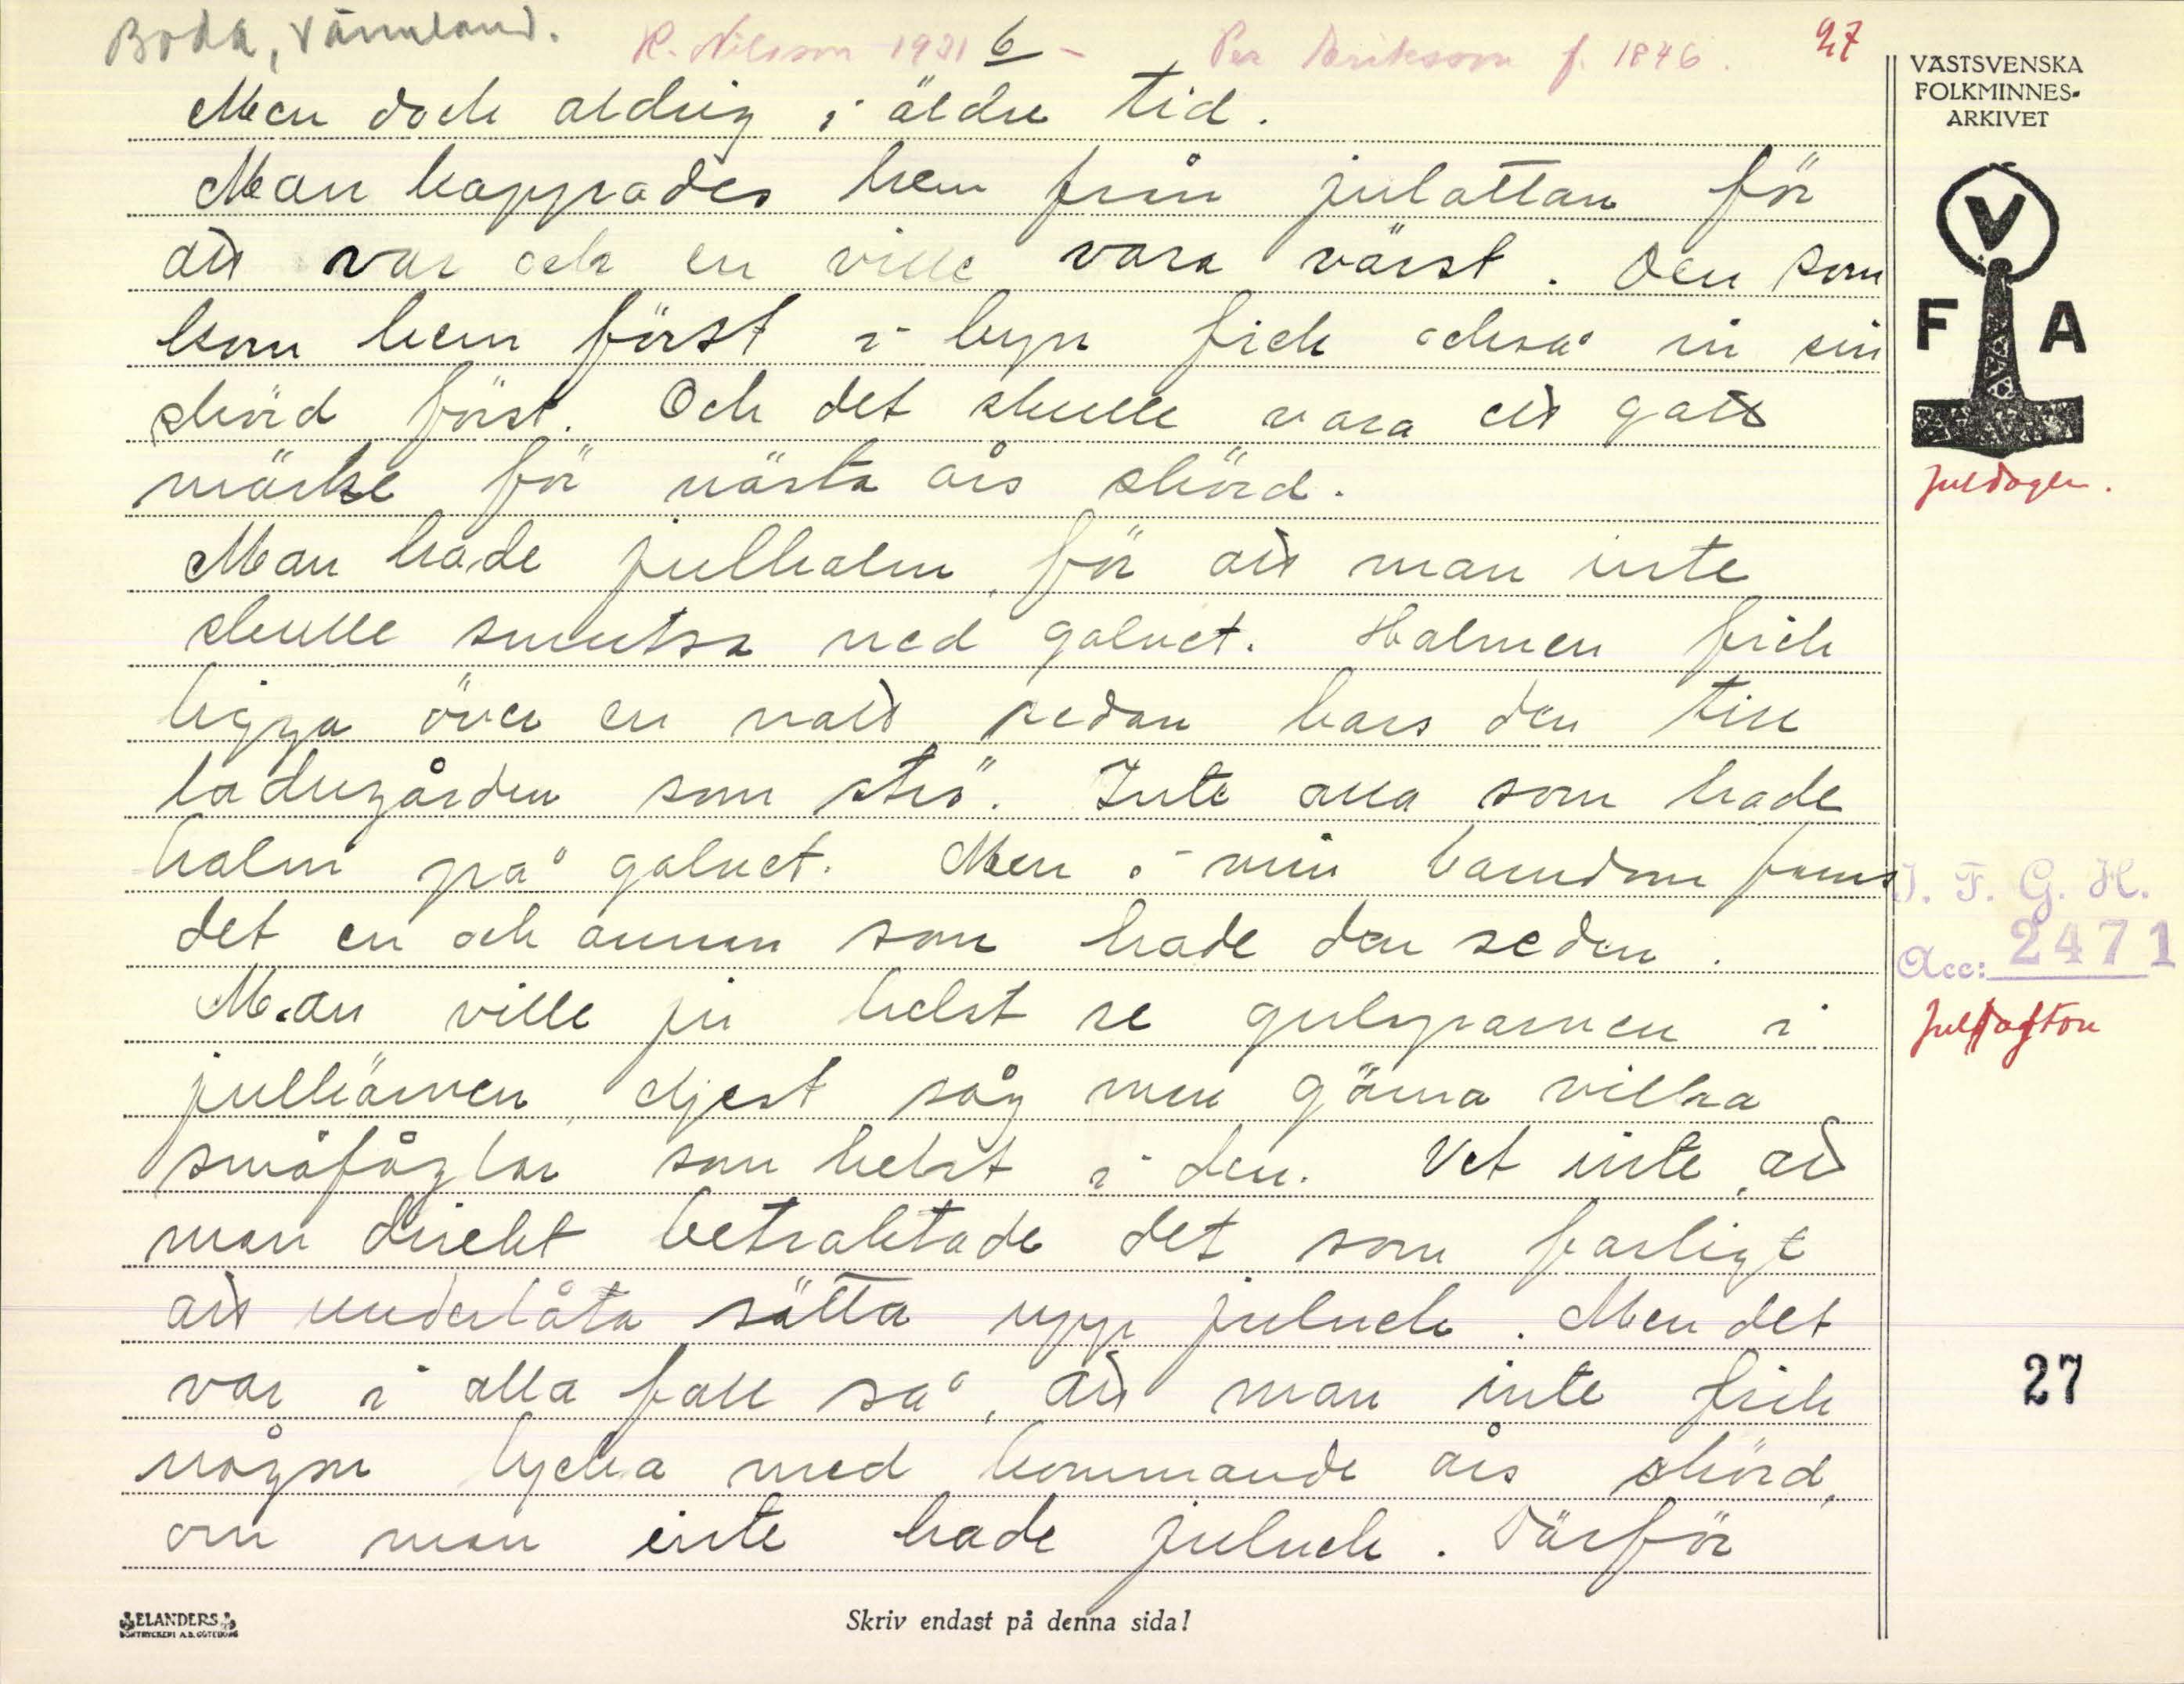 Boda, Värmland.
K. Nilsson 1931 6 - Per Eriksson f. 1846. 27
Men dock aldrig i äldre tid.
Man kapprades hem från julottan för
att var och en ville vara värst. Den som
kom hem först i byn fick också in sin
skörd först. Och det skulle vara ett gott
märke för nästa års skörd.
Man hade julhalm för att man inte
skulle smutsa ned golvet. Halmen fick
ligga över en natt sedan bars den till
ladugården som strö. Inte alla som hade
halm på golvet. Men i min barndom fanns
det en och annan som hade den seden.
Man ville ju helst se gulsparven i
julkärven, eljest såg man gärna vilka
småfåglar som helst i den. Vet inte att
man direkt betraktade det som farligt
att underlåta sätta upp julnek. Men det
var i alla fall så, att man inte fick
någon lycka med kommande års skörd,
om man inte hade julnek. Därför
VÄSTSVENSKA
FOLKMINNES-
ARKIVET
V
F A
Juldagen.
I. F. G. H.
Acc: 2471
Julafton
27
ELANDERS
BOKTRYCKERI A.B. GÖTEBORG
Skriv endast på denna sida!